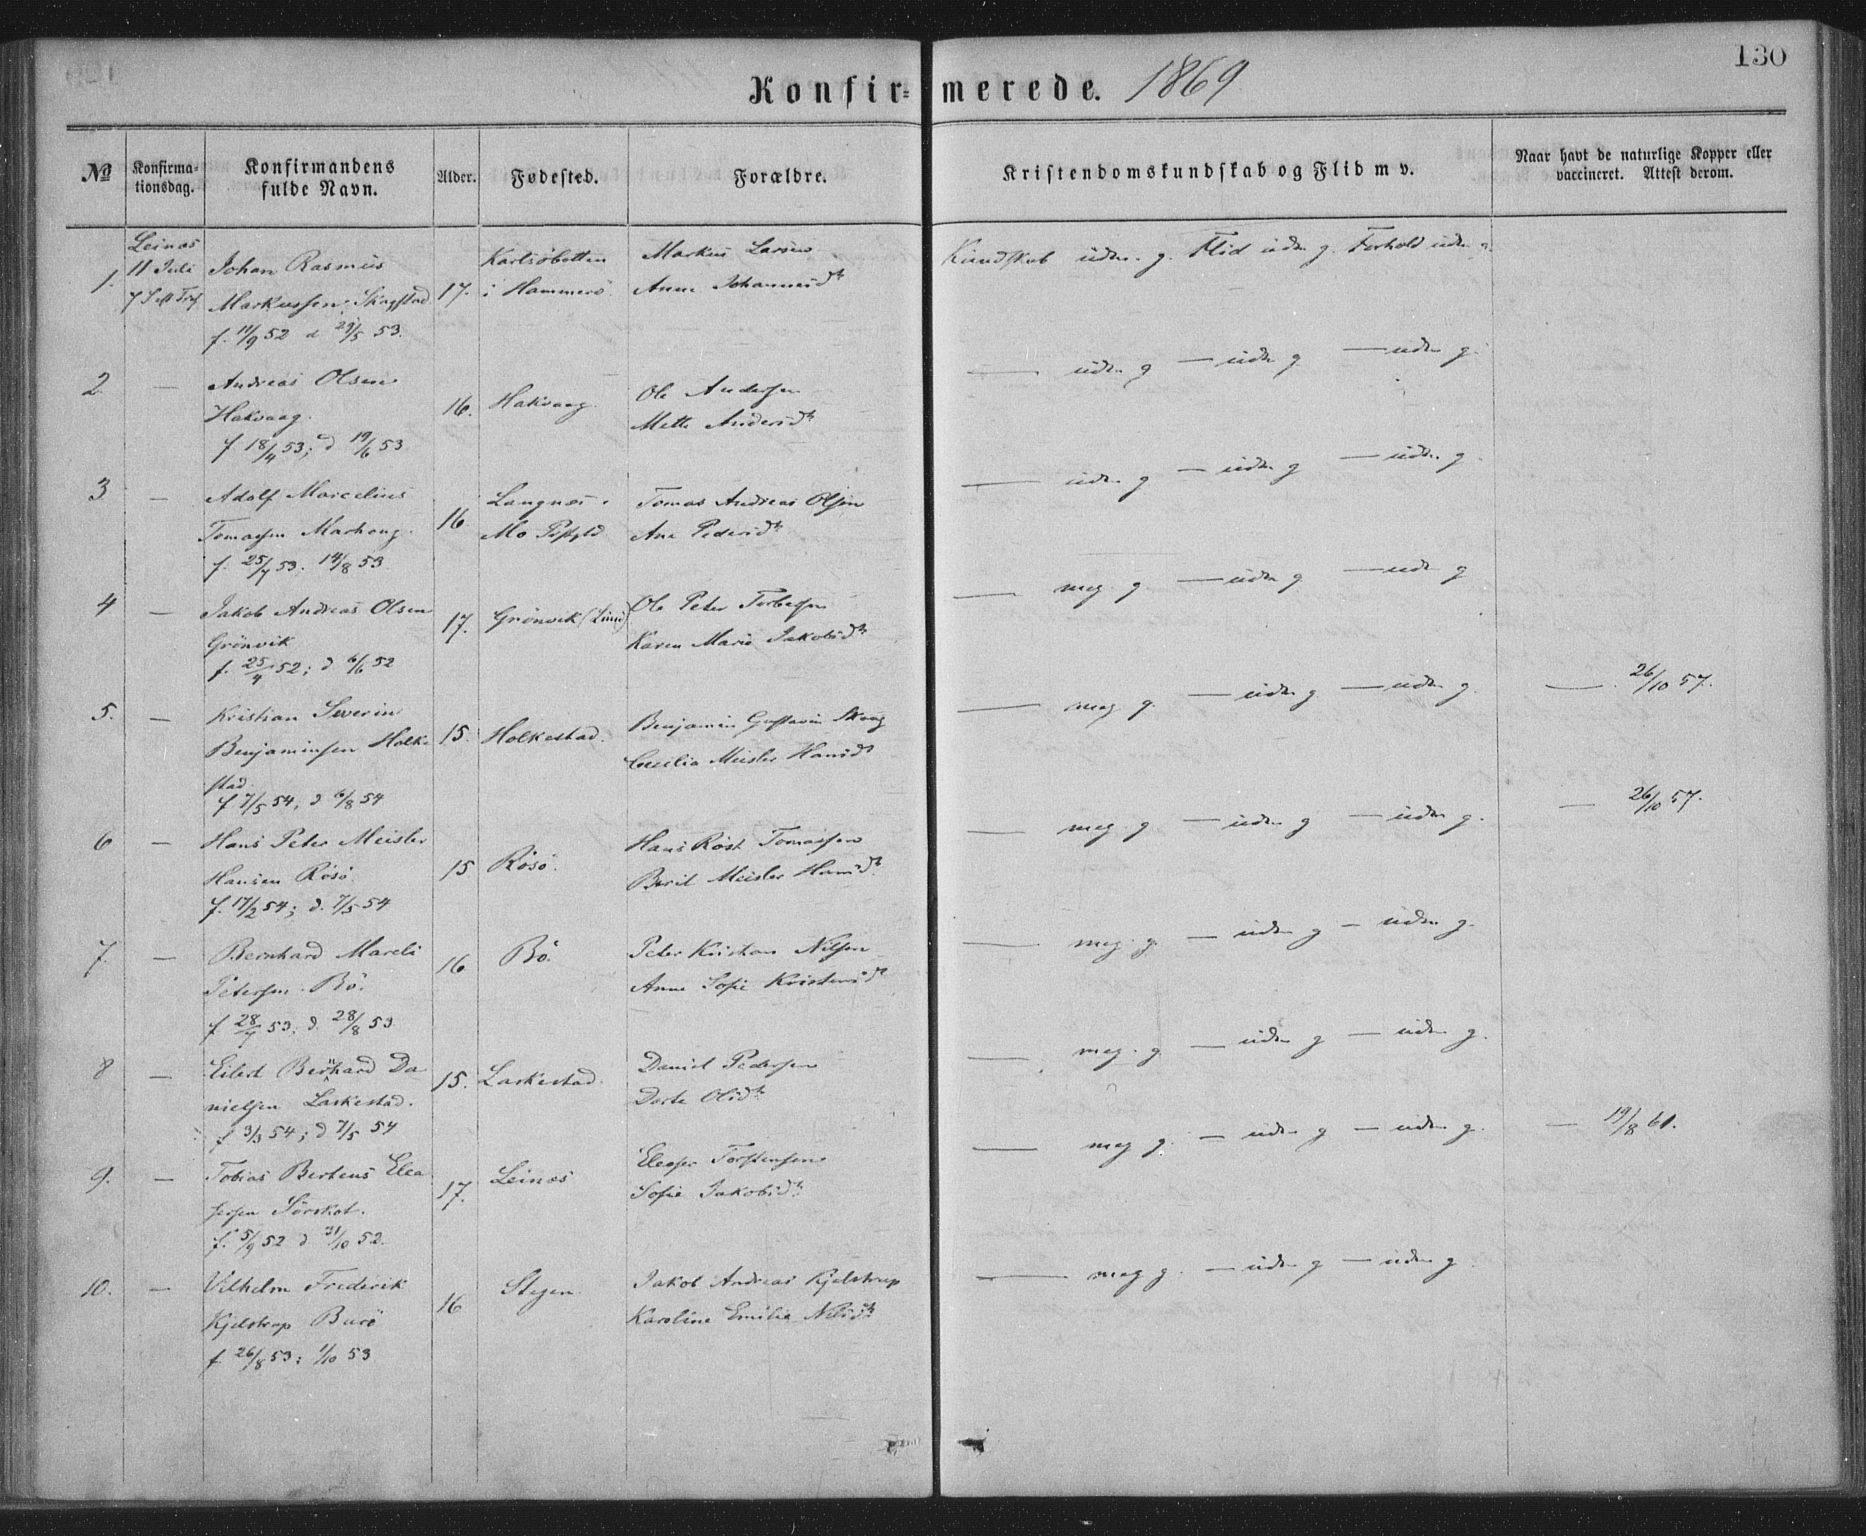 130
Konfirmerede. 1869
No
Konfirma-
tionsdag.
Konfirmandens
fulde Navn.
Alder.
Fødested.
Forældre.
Kristendomskundskab og Flid m v.
Naar havt de naturlige Kopper eller
vaccineret. Attest derom.
1.
Leines
11 Juli
Johan Rasmus
Markussen Skagstad
f. 11/9 52 d 29/5 53.
17.
i Hammerø
Markus Larsen
Anne Johannesdtr
Kundskab uden. g. Flid uden g. Forhold uden g.
2.
—
Andreas Olsen
Hakvaag.
f 18/4 53; d 19/6 53
16.
Hakvaag.
Ole Andersen
Mette Andersdtr
— uden g — uden g — uden g.
3
—
Adolf Marcelius
Tomassen Marhaug.
f. 25/7 53. 14/8 53
16
Langnes i
Mo
Tomas Andreas Olsen
Ane Pedersdtr
— uden g — uden g — uden. g.
4
—
Jakob Andreas Olsen
Grønvik
f. 25/4 52; d 6/6 52
17.
Grønvik
Ole Peter
Karen Marie Jakobsdtr
— meg. g — uden g — uden g
5.
—
Kristian Severin
Benjaminsen Holke
stad
f 7/5 54, d 6/8 54
15.
Holkestad.
Benjamin Gustavin Skaug
Cecilia Meisler Hansdtr
— meg g. — uden g — uden g.
— 26/10 57.
6
—
Hans Peter Meisler
Hansen Røsø.
f. 17/2 54; d. 7/5 54
15
Røsø.
Hans Røst Tomassen
Berit Meisler Hansdtr
— meg g — uden g — uden g.
— 26/10 57.
7.
—
Bernhard Mareli
Petersen Bø.
f 28/4 53; d. 28/8 53
16
Bø.
Peter Kristian Nilsen
Anne Sofie Kristensdtr
— meg. g. — uden g — uden g.
8
—
Eilert Bernhard Da
nielsen Laskestad.
f 3/3 54; d 7/5 54
15.
Laskestad.
Daniel Pedersen
Dorte Olsdtr
— meg. g. — uden g — uden g.
9.
—
Tobias Berteus Elea
sersen Sørskot.
f. 5/9 52 d 31/10 52.
17.
Leines
Eleaser Torstensen
Sofie Jakobsdtr
— meg g. — uden g — uden g.
— 19/8 61.
10.
—
Vilhelm Frederik
Kjelstrup Burø
f. 26/8 53; 1/10 53
16
Stegen.
Jakob Andreas Kjelstrup
Karoline Emilie Nilsdtr
— meg g. — uden g — uden g.